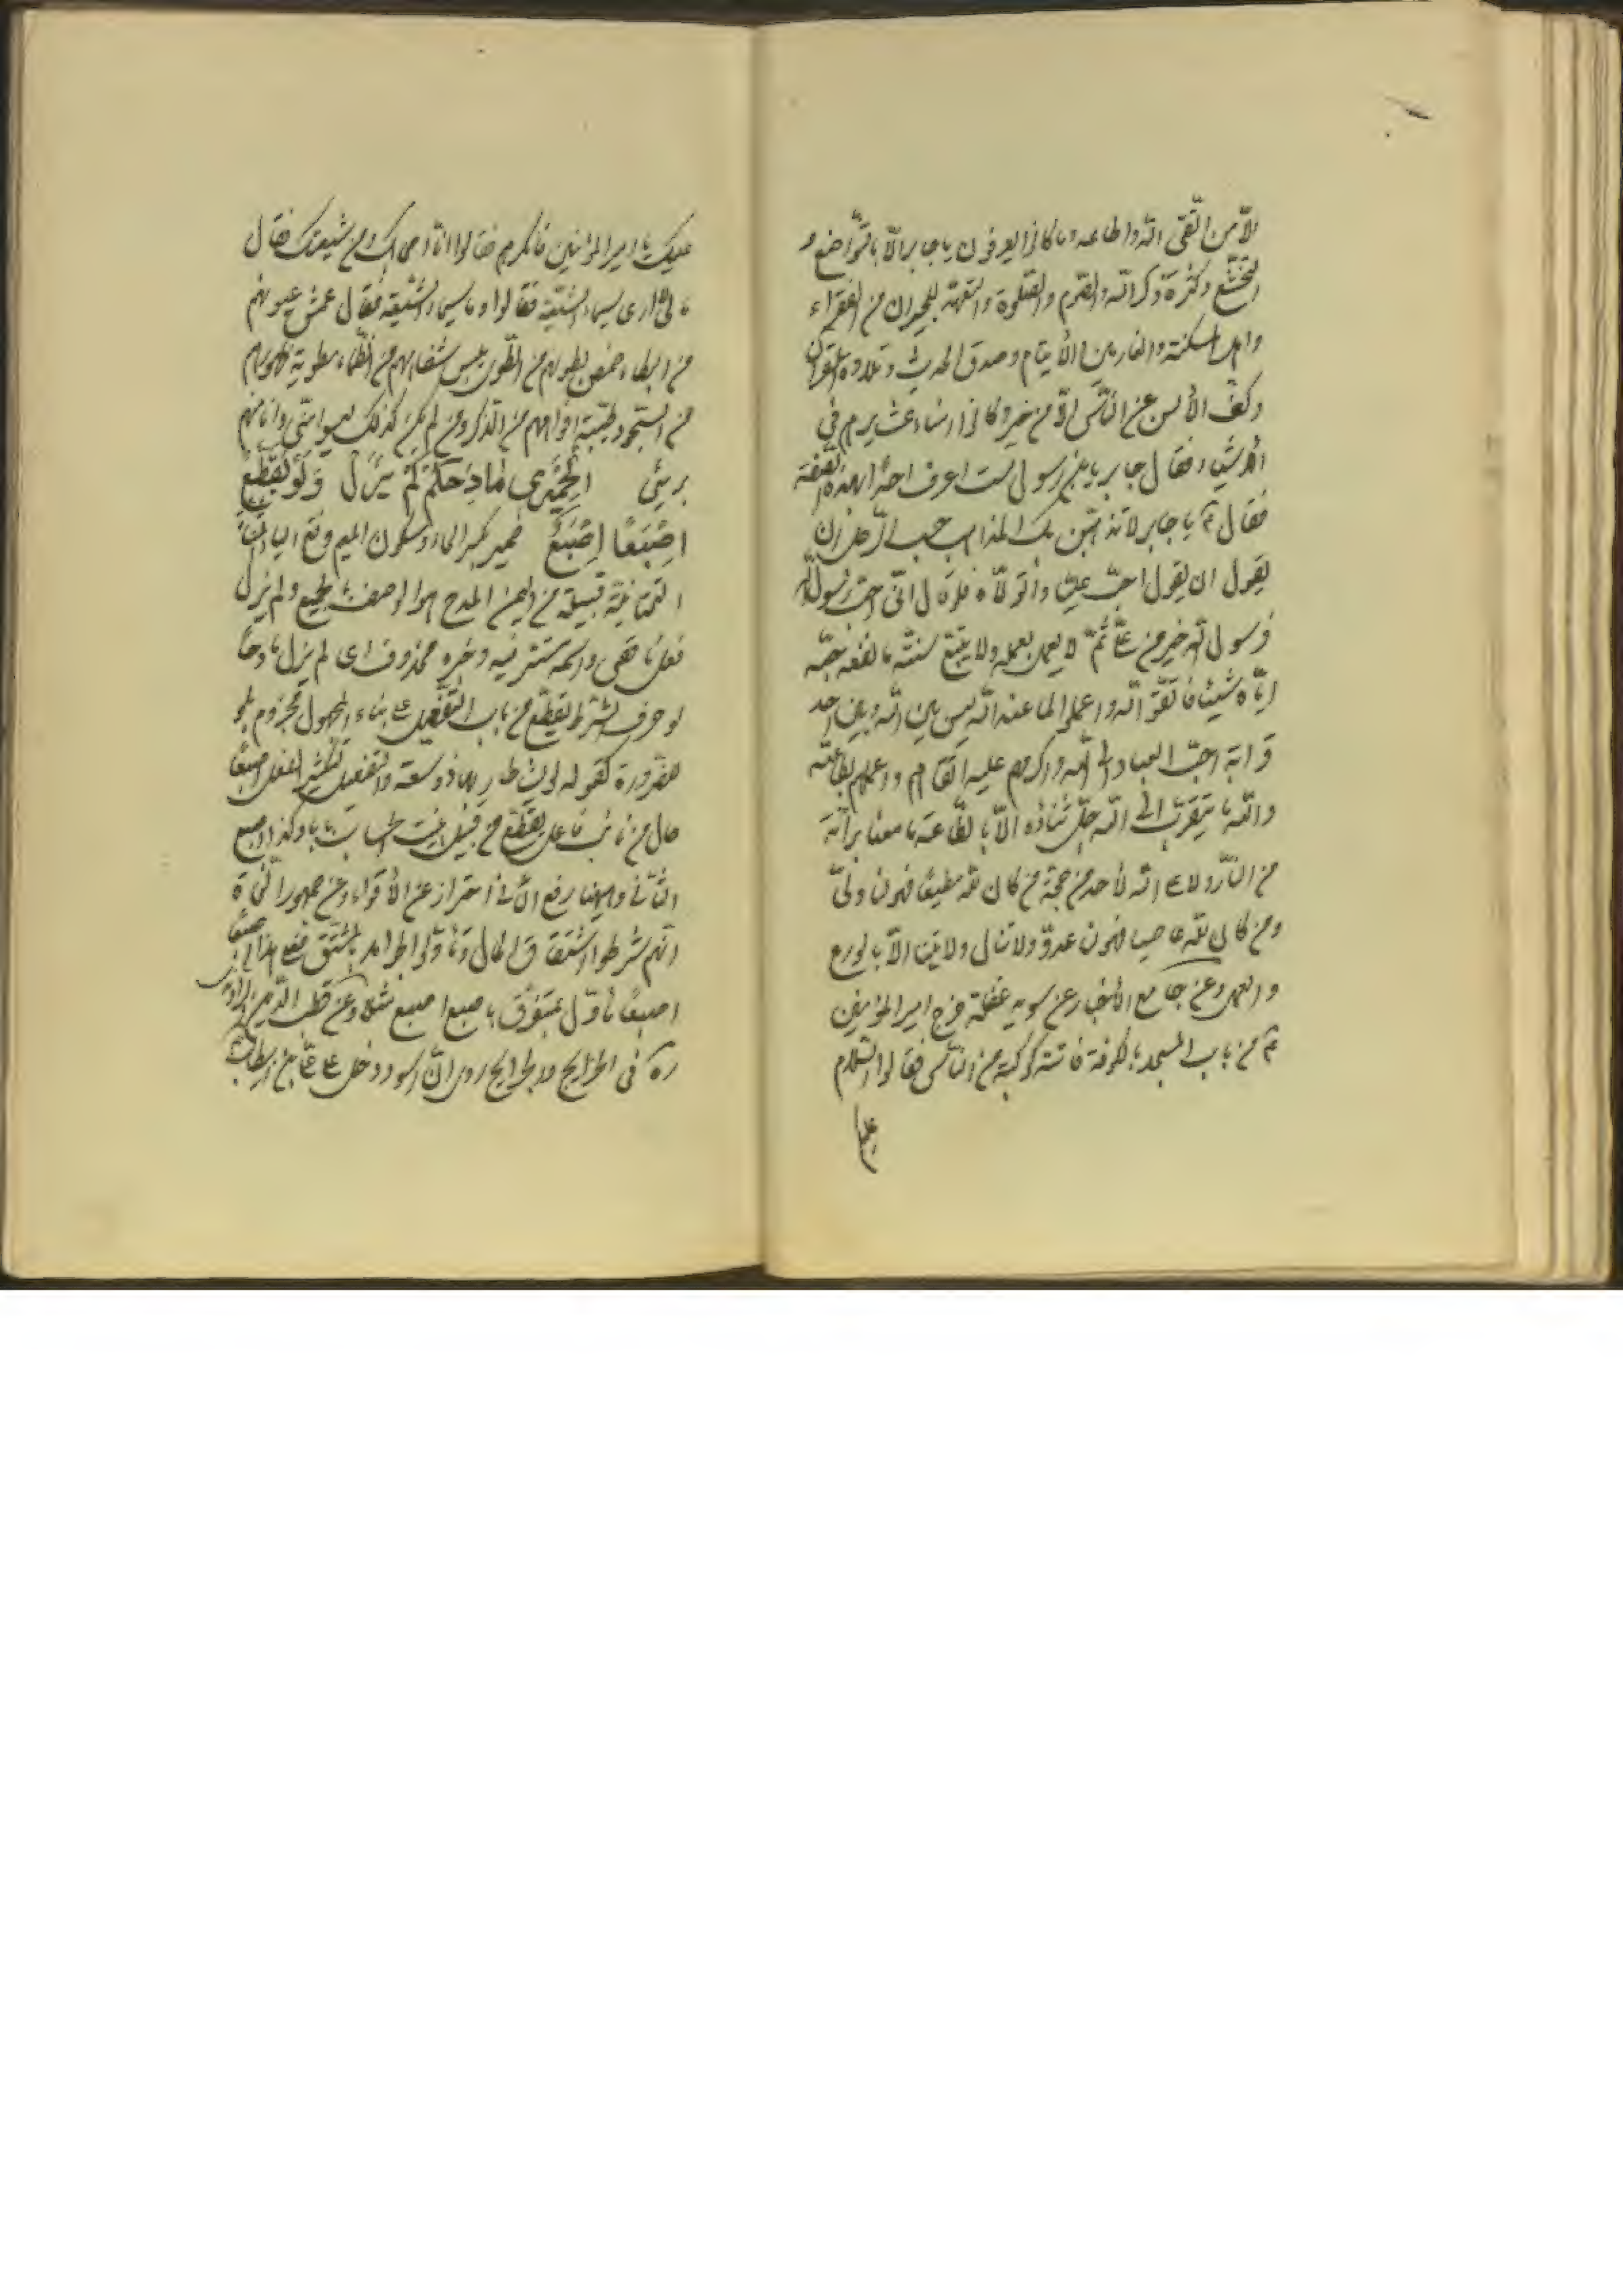 الّا من اتّقى اللّه واطاعه وما كانوا يعرفون يا جابر الّا بالتّواضع و
التخشّع وكثرة ذكر اللّه والصّوم والصّلوة والتّعهّد للجيران من الفقراء
واهل المسكنة والغارمين والأيتام وصدق الحديث وتلاوة القرآن
وكفّ الألسن عن النّاس الّا من خير وكانوا امناء عشايرهم في
الأشياء فقال جابر يابن رسول لست اعرف احدًا بهذه الصّفة
فقال ع يا جابر لا تذهبنّ بك المذاهب حسب الرّجل ان
يقول ان يقول احبّ عليّا واتولّاه فلو قال انّى احبّ رسول اللّه
فرسول اللّه خير من عليّ ثمّ لا يعمل بعمله ولا يتّبع سنّته ما نفعه حبّه
ايّاه شيئا فاتّقو اللّه واعملوا لما عند اللّه ليس بين اللّه وبين احد
قرابة احبّ العباد الى اللّه واكرمهم عليه اتقاهم واعملهم بطاعته
واللّه ما يتقرّب الى اللّه جلّ ثناؤه الّا بالطّاعة ما معنا برآئة
من النّار ولا على اللّه لأحد من حجّة من كان للّه مطيعًا فهو لنا وليّ
ومن كان للّه عاصيا فهو لنا عدوّ ولا تنال ولايتنا الّا بالورع
والعمل وعن جامع الأخبار عن سويد غفلة خرج امير المؤمنين
ع من باب المسجد بالكوفة فاستتر كوكبة من النّاس فقالوا السّلام
عليك
عليك يا امير المؤمنين فانكرهم فقالوا انا اصحابك ومن شيعتك فقال
ما لى لا ارى سيماء الشّيعة فقالوا وما سيماء الشّيعة فقال عمش عيونهم
من البكاء خمص بطونهم من الطّوى يبس شفاههم من الظّماء مطوية ظهورهم
من السّجود طيّبة افواههم من الذّكر ومن لم يكن كذلك ليسوا منّى وانا منهم
برىئ الحميرى مادحكم لم يزل ولو يقطّع
اصبعا اصبع حمير بكسر الحاء وسكون الميم وفتح الياء المثنّاة
التّحتانيّة قبيلة من اليمن المدح هو الوصف بالجميع ولم يزل
فعل ناقص واسمه مستتر فيه وخبره محذوف اى لم يزل مادحا
لو حرف الشّرط يقطّع من باب التّفعيل على بناء المجهول مجزوم بلو
ضرورة كقوله لو يشاء طار بها ذو سعة والتّفعيل لتكثير الفعل اصبعًا
حال من نائب فاعل يقطّع من قبيل بيّنت الحساب بابا بابا وكذا اصبع
الثّانى وههنا رفع الثّانى احتراز عن الأقواء وعن جمهور النّحاة
انّهم شرطوا اشتقاق الحال وتأوّلوا الجوامد بالمشتقّ فعلى هذا اصبعا
اصبعًا ماوّل بمتفرّق باصبع اصبع مثلا وعن قطب الدّين الراوندى
ره فى الخرايج والجرايح روى انّ اسود دخل على علىّ بن ابيطالب